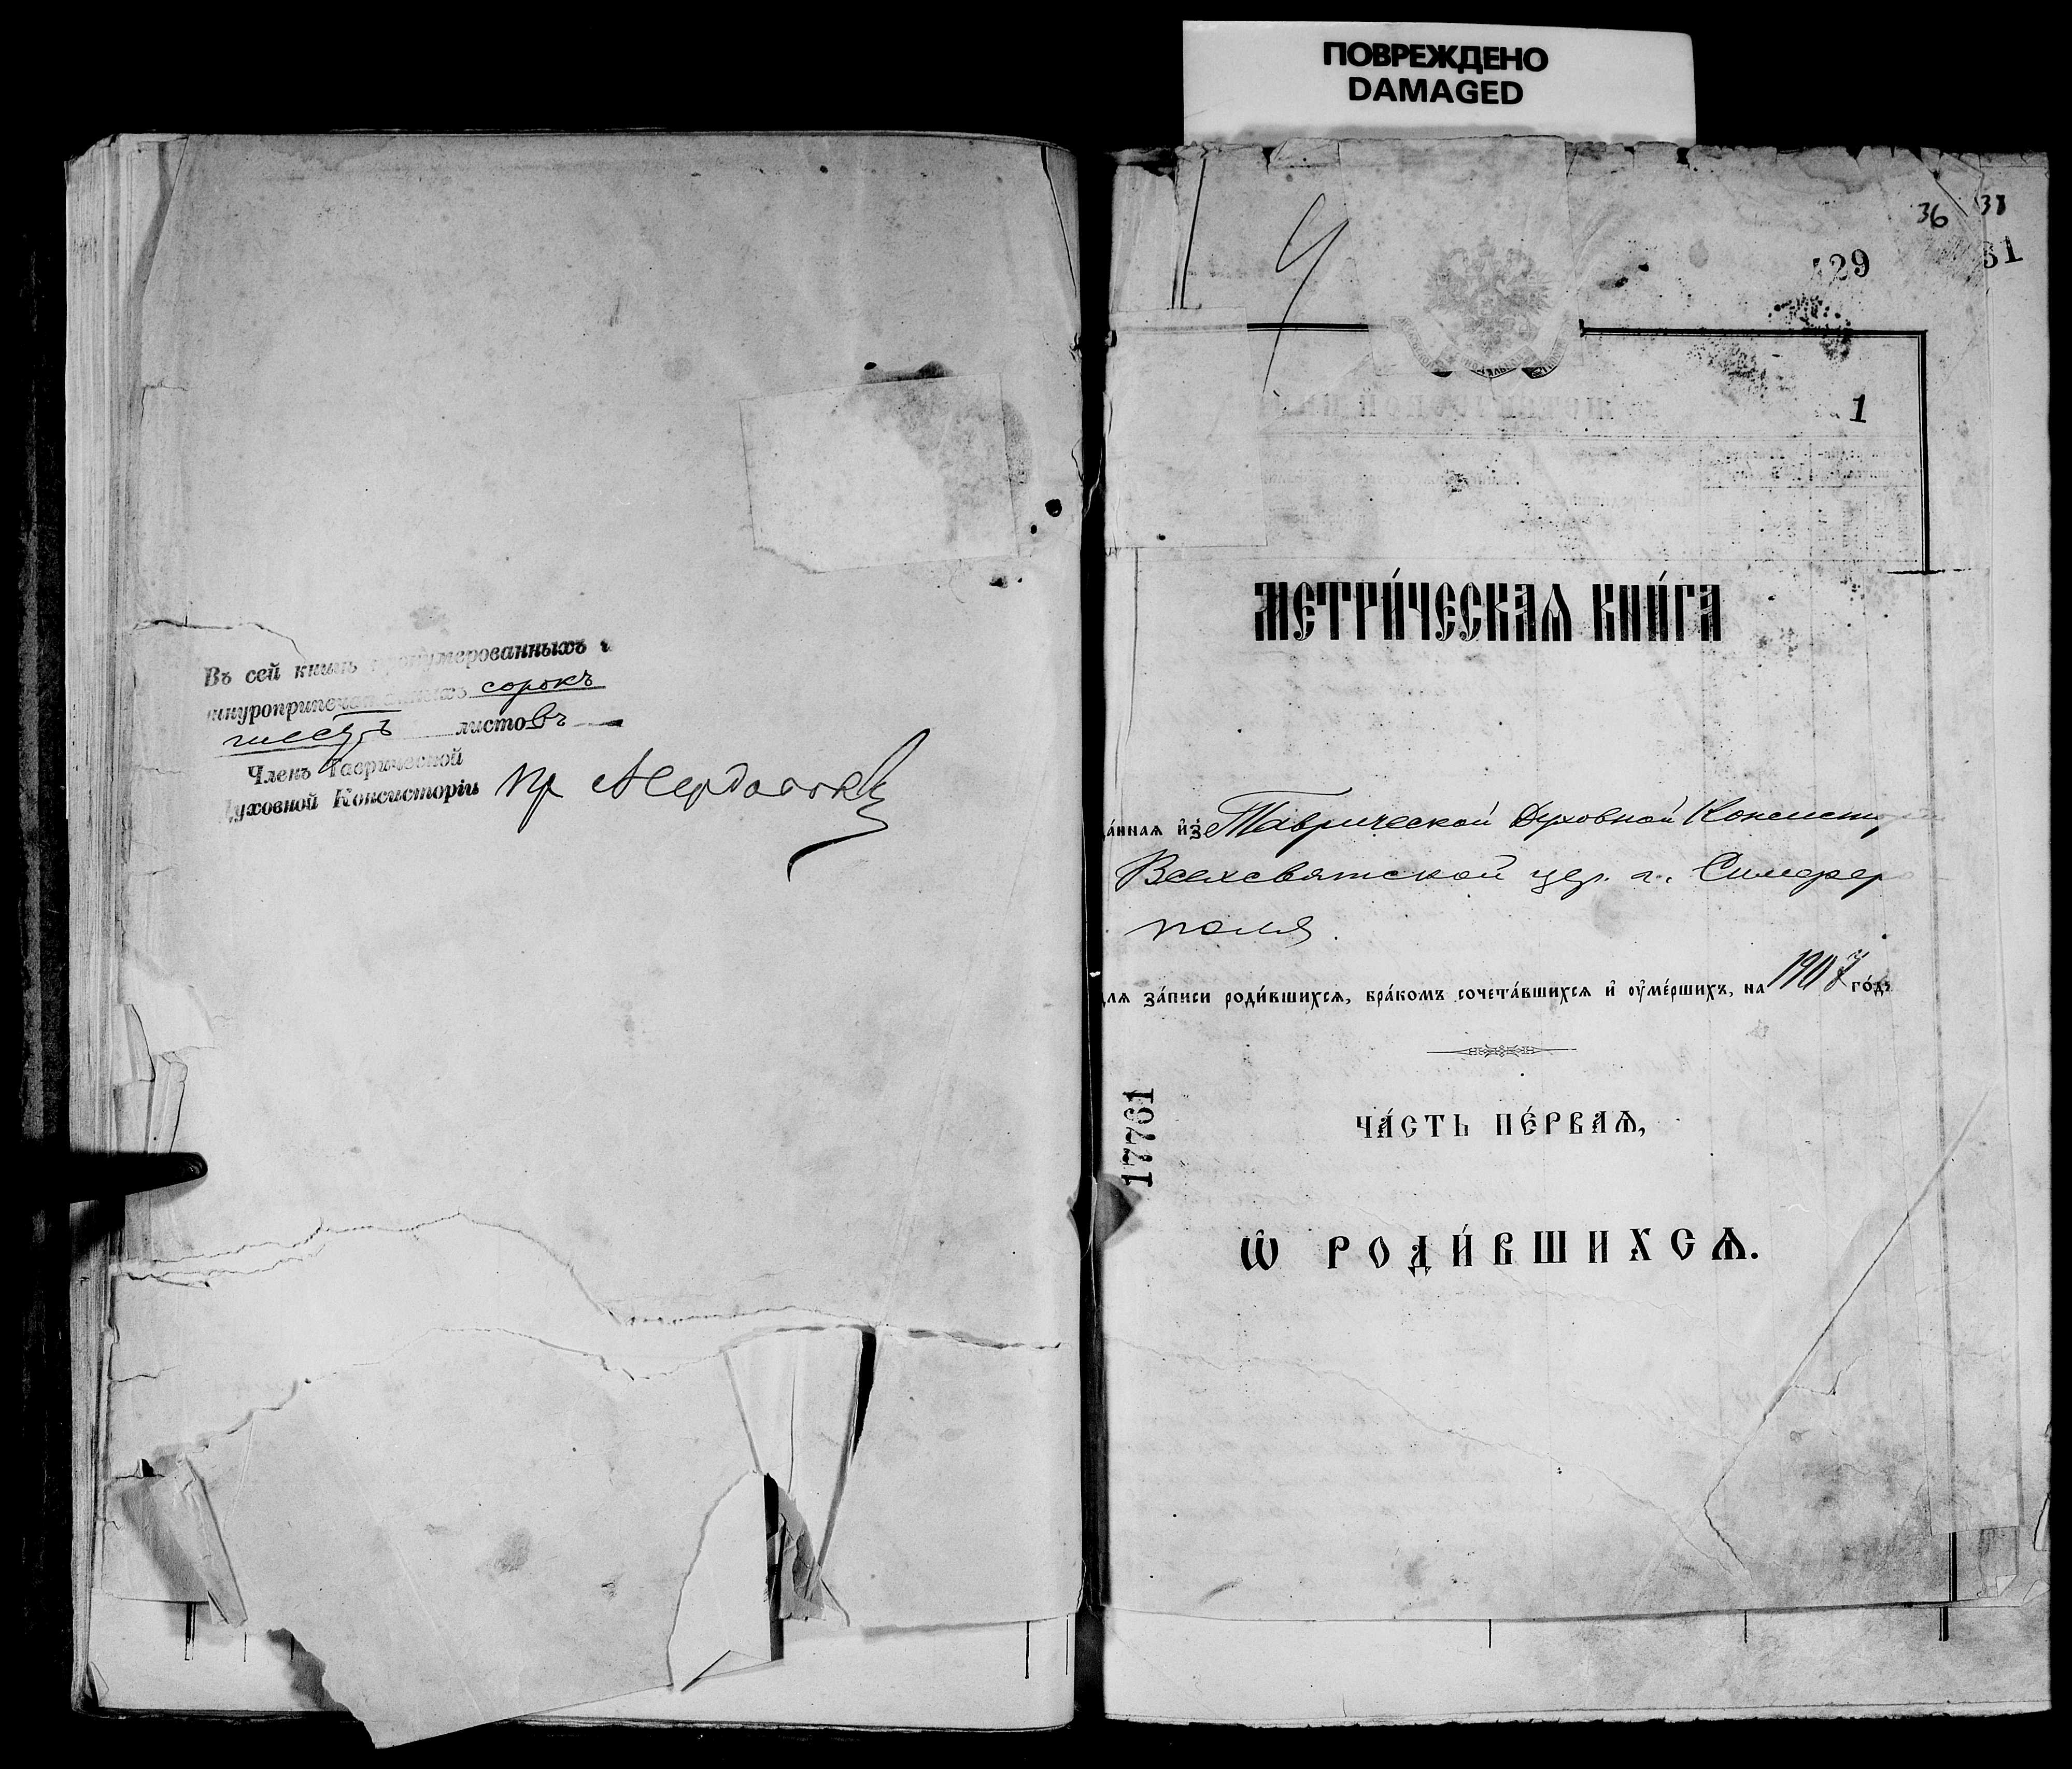 ПОВРЕЖДЕНО
DAMAGED
Въ сей книгѣ пронумерованныхъ и
шнуроприпечатанныхъ сорокъ
шесть листовъ
Членъ Таврической
Духовной Консисторіи Пр
36 37
429 31
1
МЕТРИ́ЧЕСКАѦ КНИ́ГА
да́ннаѧ и҆зъ Таврической Духовной Консистор
Всехсвятской цер. г. Симферо
поля
для за́писи роди́вшихсѧ, бра́комъ сочета́вшихсѧ и҆ оу҆ме́ршихъ, на 1907 го́дъ
17761
ЧА́СТЬ ПЕ́РВАѦ,
Ѡ҆ РОДИ́ВШИХСѦ.